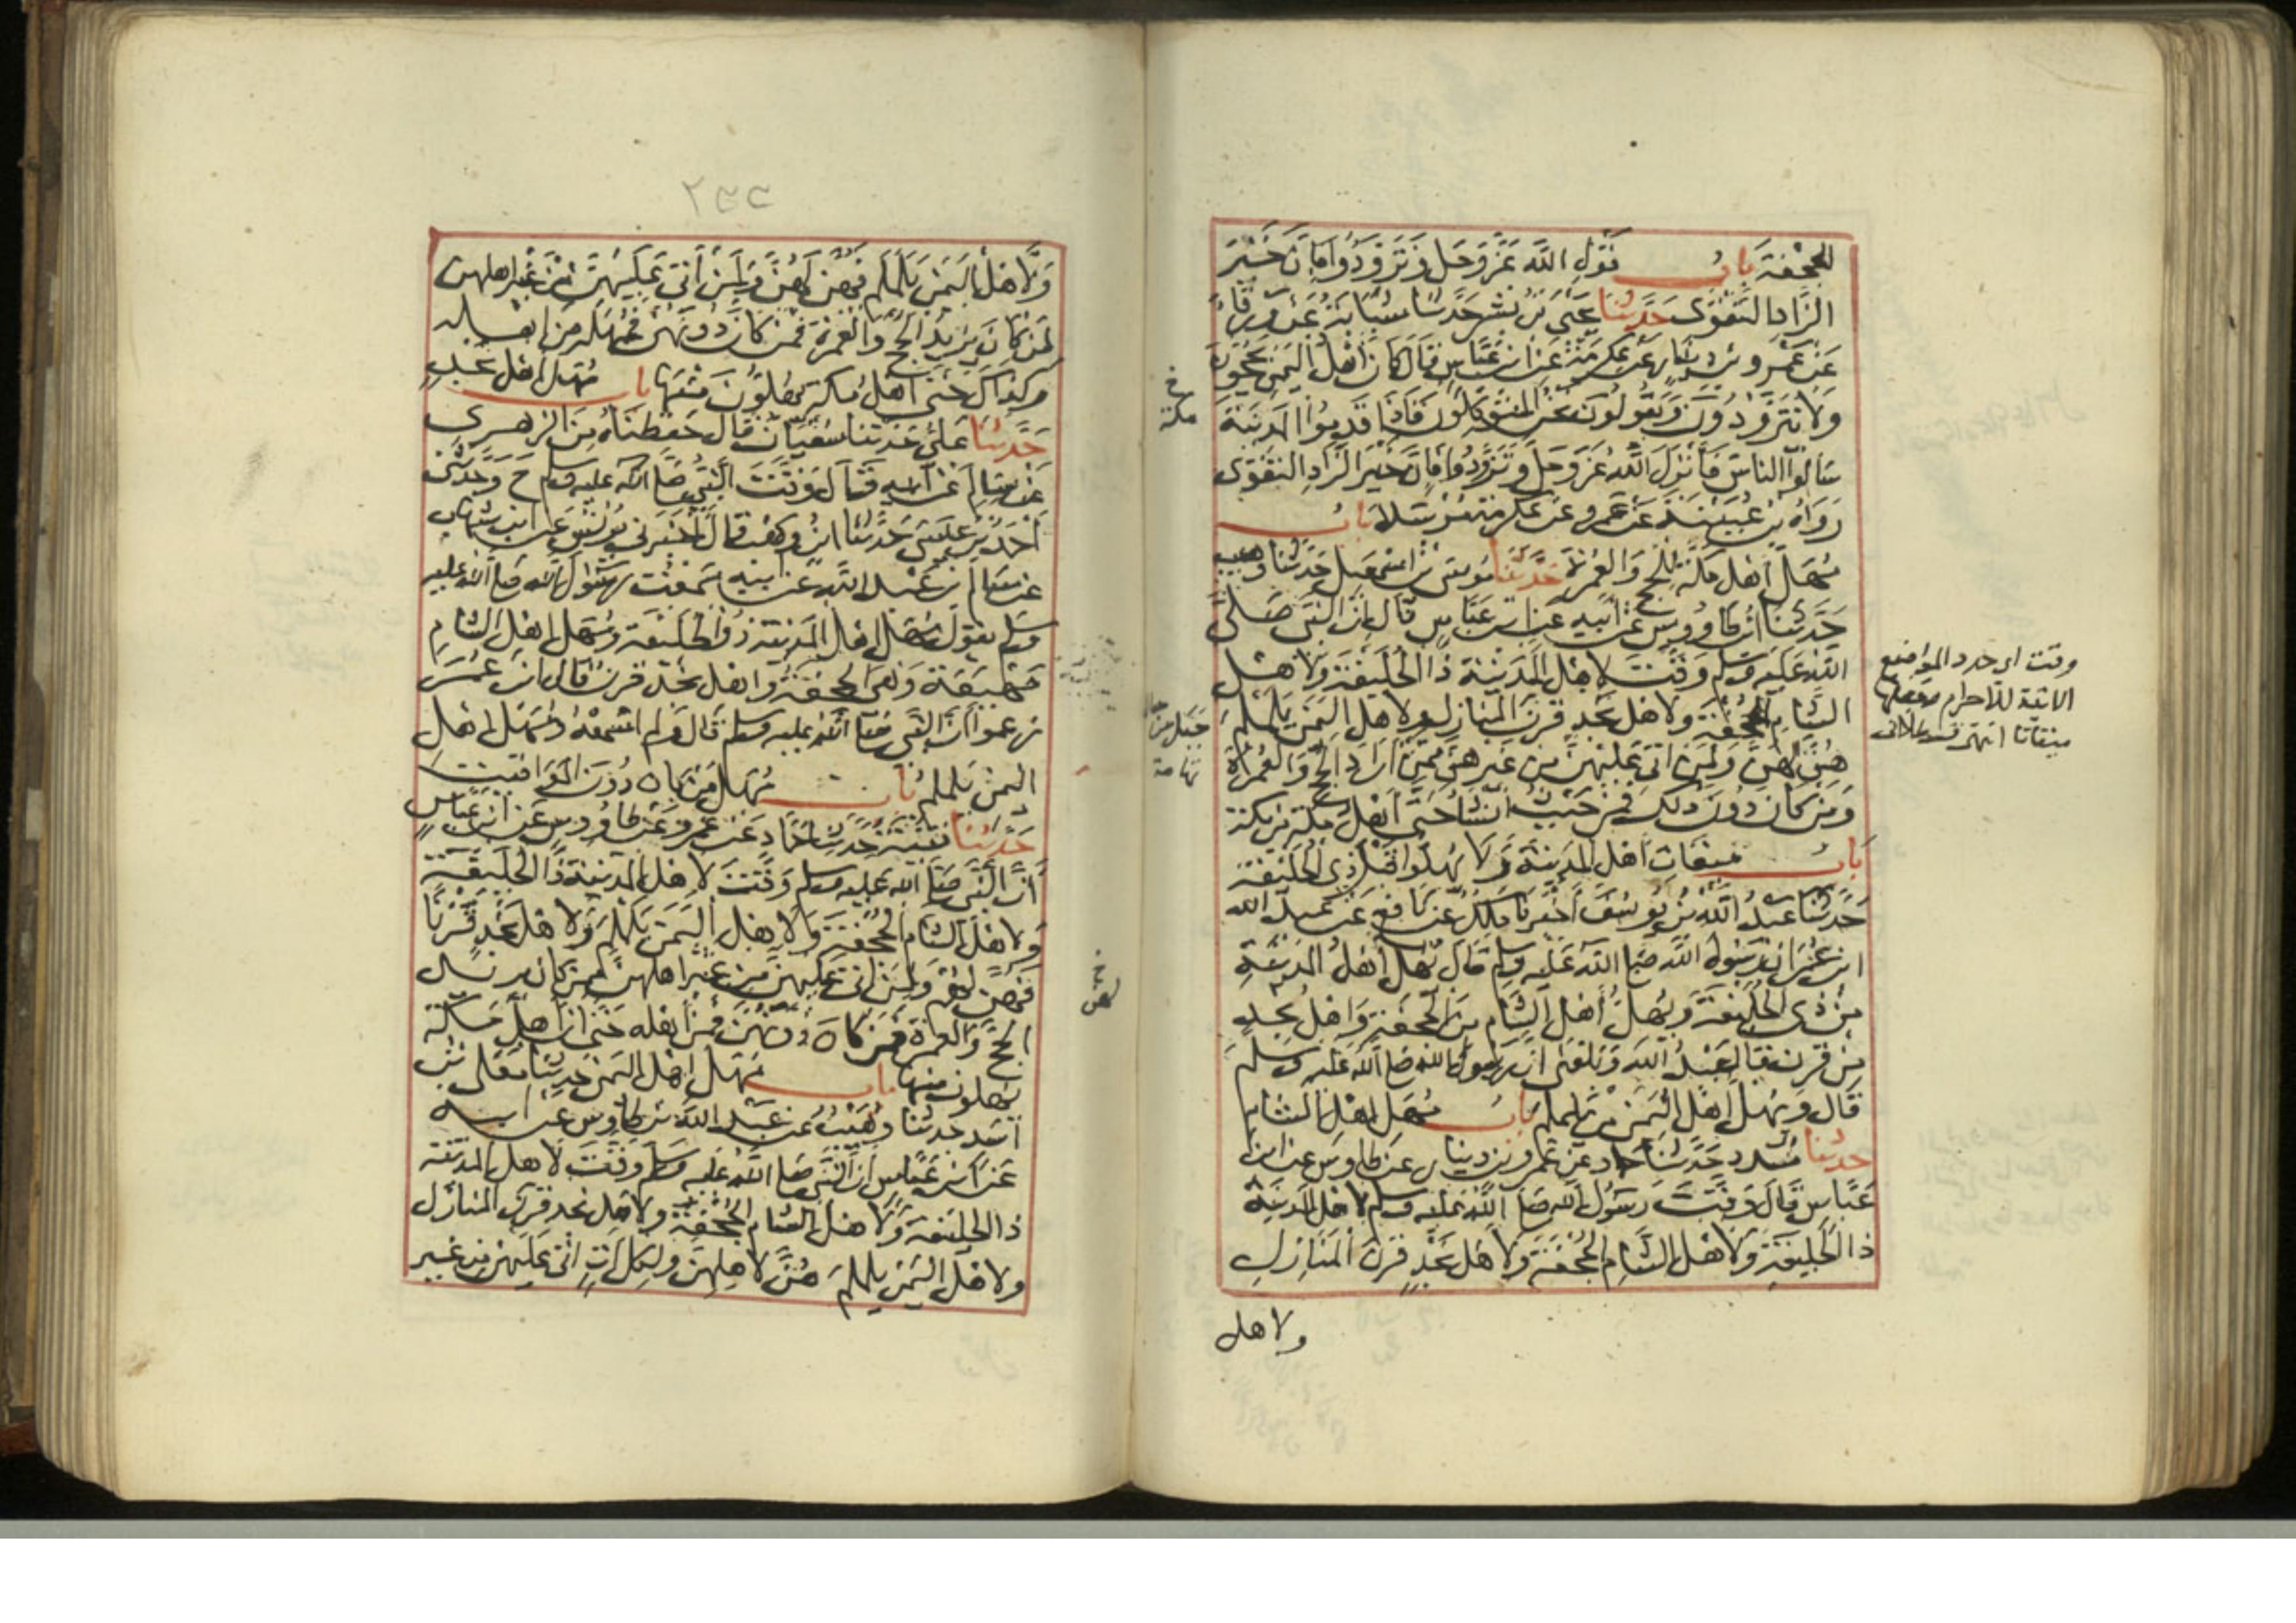 الجحفة باب قول الله عز وجل وتزودوا فان خير
الزاد التقوى حدثنا يحيى بن بشر حدثنا شبابة عن ورقاء
عن عمرو بن دينار عن عكرمة عن ابن عباس قال كان اهل اليمن يحجون
ولا يتزودون ويقولون نحن المتوكلون فاذا قدموا المدينة
سالوا الناس فانزل الله عز وجل وتزودوا فان خير الزاد التقوى
رواه بن عيينة عن عمرو عن عكرمة مرسلا باب
مهل اهل مكة للحج والعمرة حدثنا موسى بن اسمعيل حدثنا وهيب
حدثنا ابن طاووس عن ابيه عن ابن عباس قال ان النبي صلى
الله عليه وسلم وقت لاهل المدينة ذا الحليفة ولاهل
الشام الجحفة ولاهل نجد قرن المنازل ولاهل اليمن يلملم
هن لهن ولمن اتى عليهن من غيرهن ممن اراد الحج والعمرة
ومن كان دون ذلك فمن حيث انشا حتى اهل مكة من مكة
باب ميقات اهل المدينة ولا يهلوا قبل ذي الحليفة
حدثنا عبد الله بن يوسف اخبرنا مالك عن نافع عن عبد الله
ابن عمر ان رسول الله صلى الله عليه وسلم قال يهل اهل المدينة
من ذي الحليفة ويهل اهل الشام من الجحفة واهل نجد
من قرن قال عبد الله وبلغني ان رسول الله صلى الله عليه وسلم
قال ويهل اهل اليمن من يلملم باب مهل اهل الشام
حدثنا مسدد حدثنا حماد عن عمرو بن دينار عن طاوس عن ابن
عباس قال وقت رسول الله صلى الله عليه وسلم لاهل المدينة
ذا الحليفة ولاهل الشام الجحفة ولاهل نجد قرن المنازل
ولاهل
وقت اى حدد المواضع
الاتية للاحرام وجعلها
ميقاتا انتهى قسطلانى
خ
مكة
جبل من
تهامة
ولاهل اليمن يلملم فهن لهن ولمن اتى عليهن من غير اهلهن
لمن كان يريد الحج والعمرة فمن كان دونهن فمهله من اهله
وكذاك حتى اهل مكة يهلون منها باب مهل اهل نجد
حدثنا علي حدثنا سفيان قال حفظناه من الزهري
عن سالم عن ابيه قال وقت النبي صلى الله عليه وسلم ح وحدثني
احمد بن عيسى حدثنا ابن وهب قال اخبرني يونس عن ابن شهاب
عن سالم بن عبد الله عن ابيه سمعت رسول الله صلى الله عليه
وسلم يقول مهل اهل المدينة ذو الحليفة ومهل اهل الشام
مهيعة وهي الجحفة واهل نجد قرن قال ابن عمر
زعموا ان النبي صلى الله عليه وسلم قال ولم اسمعه ومهل اهل
اليمن يلملم باب مهل من كان دون المواقيت
حدثنا قتيبة حدثنا حماد عن عمرو عن طاووس عن ابن عباس
ان النبي صلى الله عليه وسلم وقت لاهل المدينة ذا الحليفة
ولاهل الشام الجحفة ولاهل اليمن يلملم ولاهل نجد قرنا
فهن لهم ولمن اتى عليهن من غير اهلهن ممن كان يريد
الحج والعمرة فمن كان دونهن فمن اهله حتى ان اهل مكة
يهلون منها باب مهل اهل اليمن حدثنا معلى بن
اسد حدثنا وهيب عن عبد الله بن طاوس عن ابيه
عن ابن عباس ان النبي صلى الله عليه وسلم وقت لاهل المدينة
ذا الحليفة ولاهل الشام الجحفة ولاهل نجد قرن المنازل
ولاهل اليمن يلملم هن لاهلهن ولكل ات اتى عليهن من غير
خ
لهن